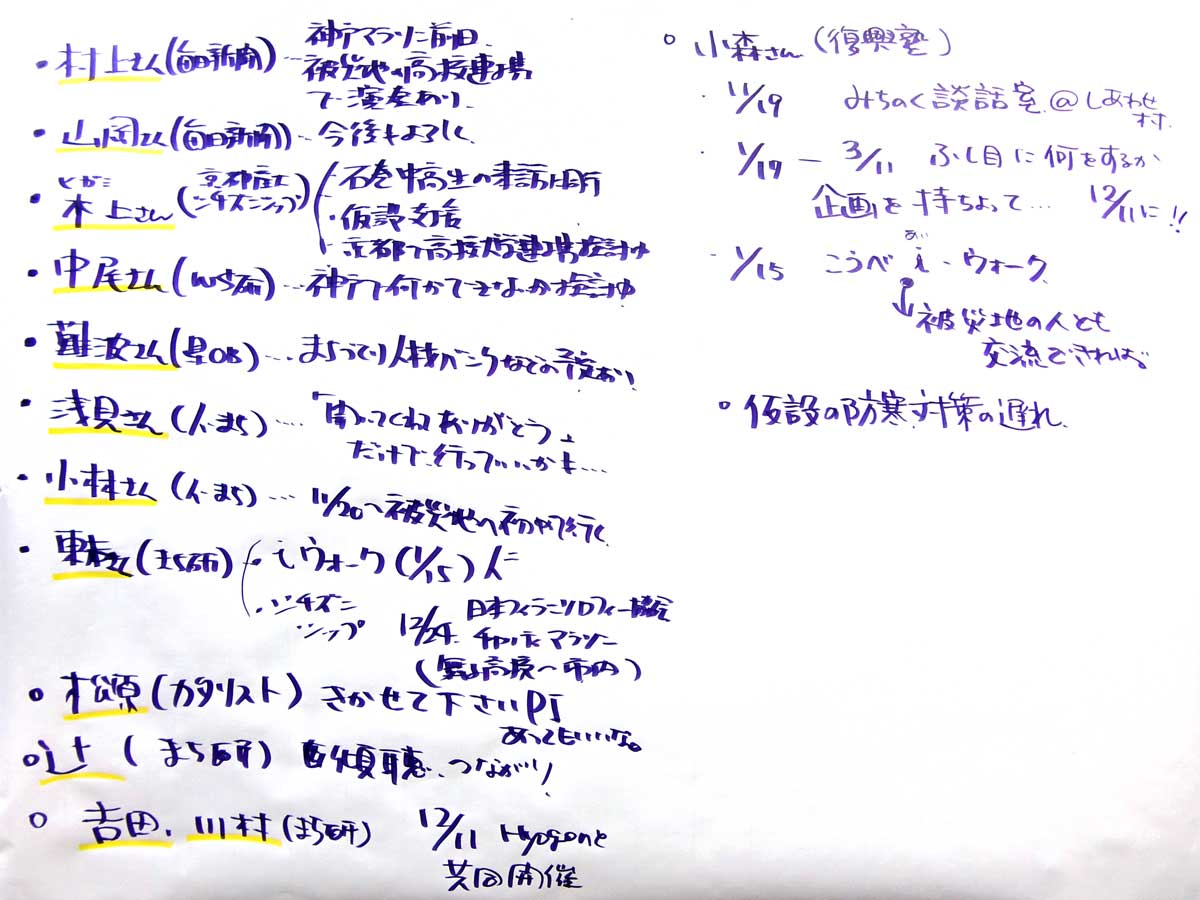 ・村上さん(毎日新聞)…神戸マラソン前日、
被災地の高校と連携
で演奏あり。
・山岡さん(毎日新聞)…今後もよろしく
・木上さん(京都産大
シチズンシップ)
・石巻中高生の来訪
・仮設支援
・京都で高校大学連携検討中
・中尾さん(WS系)…神戸で何かできないか検討中
・難波さん(県OB)…まちづくり人材バンクなどの予定あり!
・浅見さん(人・まち)…「聞いてくれてありがとう」
だけで、行っていいかも…
・小林さん(人・まち)…11/20〜被災地へ初めて行く
・東末さん(まち研)・iウォーク(1/15)に
・シチズン
シップ
12/24 日本フィランソロフィー協会
チャリティマラソン
高校〜市内)
○松原(カタリスト)きかせて下さいPJ
あってもいいな。
○辻(まち研)傾聴、つながり!
○吉田、川村(まち研) 12/11 Hyogonと
共同開催
○小森さん(復興塾)
・11/19 みちのく談話室@しあわせ
村
・1/17 — 3/11 ふし目に何をするか
企画を持ちよって… 12/11に!!
・1/15 こうべi・ウォーク
あい
↓被災地の人とも
交流できれば
○仮設の防寒対策の遅れ